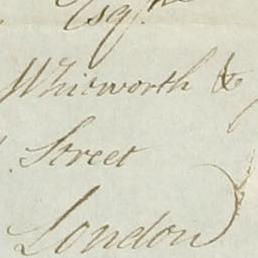 Esqrs
Whitworth &
Street
London